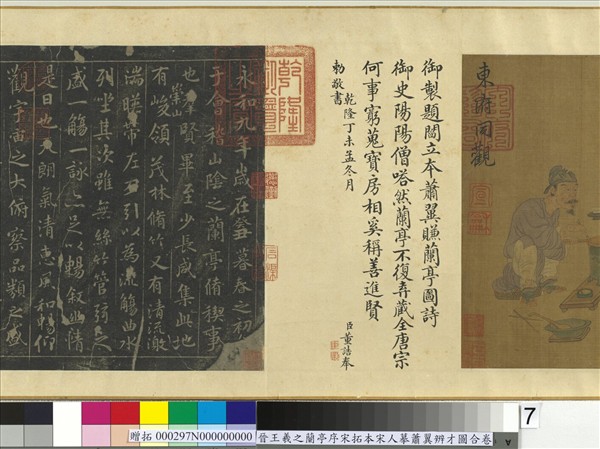 東府同觀
御製題閻立本蕭翼賺蘭亭圖詩
御史陽陽僧嗒然蘭亭不復弆藏全唐宗
何事窮蒐寶房相奚稱善進賢
乾隆丁未孟冬月
臣董誥奉
勅敬書
永和九年歲在癸丑暮春之初
于會稽山陰之蘭亭脩稧事
也羣賢畢至少長咸集此地
崇山
有峻領茂林脩竹又有清流激
湍暎帶左右引以為流觴曲水
列坐其次雖無絲竹管弦之
盛一觴一詠亦足以暢敘幽情
是日也天朗氣清惠風和暢仰
觀宇宙之大俯察品類之盛
7
贈拓 000297N000000000 晉王羲之蘭亭序宋拓本宋人摹蕭翼辨才圖合卷
A